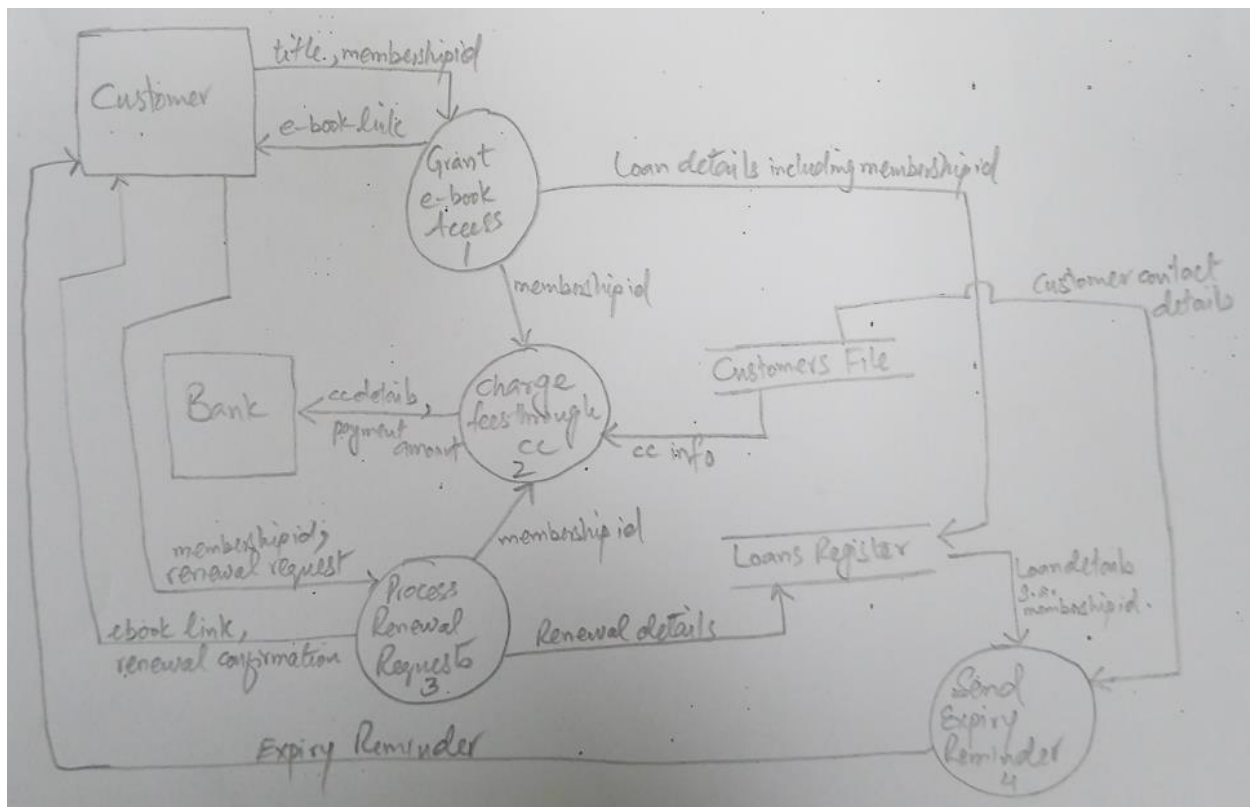 Customer
title, membershipid
e-book link
Grant
e-book
Access
1
Loan details including membershipid
membershipid
Customer contact
details
Customers File
Bank
ccdetails,
payment
amount
Charge
fees through
cc
2
cc info
membershipid,
renewal request
membership id
Loans Register
Process
Renewal
Requests
3.
ebook link,
renewal confirmation
Renewal details
Loan details
membershipid.
Send
Expiry
Reminder
4
Expiry Reminder